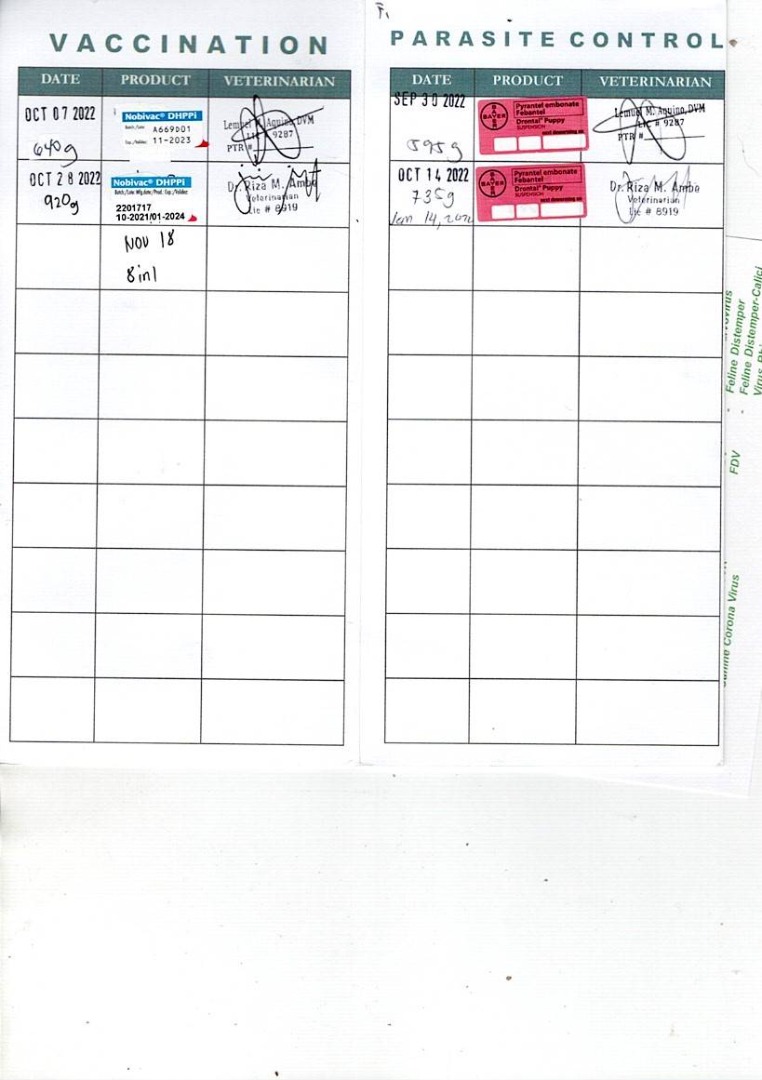 VACCINATION
DATE PRODUCT VETERINARIAN
OCT 07 2022
640g
Nobivac® DHPPi
A669D01
11-2023
Lemuel M. Aquino, DVM
Lic # 9287
PTR #
OCT 28 2022
920g
Nobivac® DHPPi
2201717
10-2021/01-2024
Dr. Riza M. Ambe
Veterinarian
Lic # 8919
NOV 18
8in1
PARASITE CONTROL
DATE PRODUCT VETERINARIAN
SEP 30 2022
595g
BAYER
Pyrantel embonate
Febantel
Drontal® Puppy
SUSPENSION
next deworming on
Lemuel M. Aquino, DVM
Lic # 9287
PTR #
OCT 14 2022
735g
14,
BAYER
Pyrantel embonate
Febantel
Drontal® Puppy
SUSPENSION
next deworming on
Dr. Riza M. Ambe
Veterinarian
Lic # 8919
Feline Distemper
Feline Distemper-Calici
FDV
Corona Virus